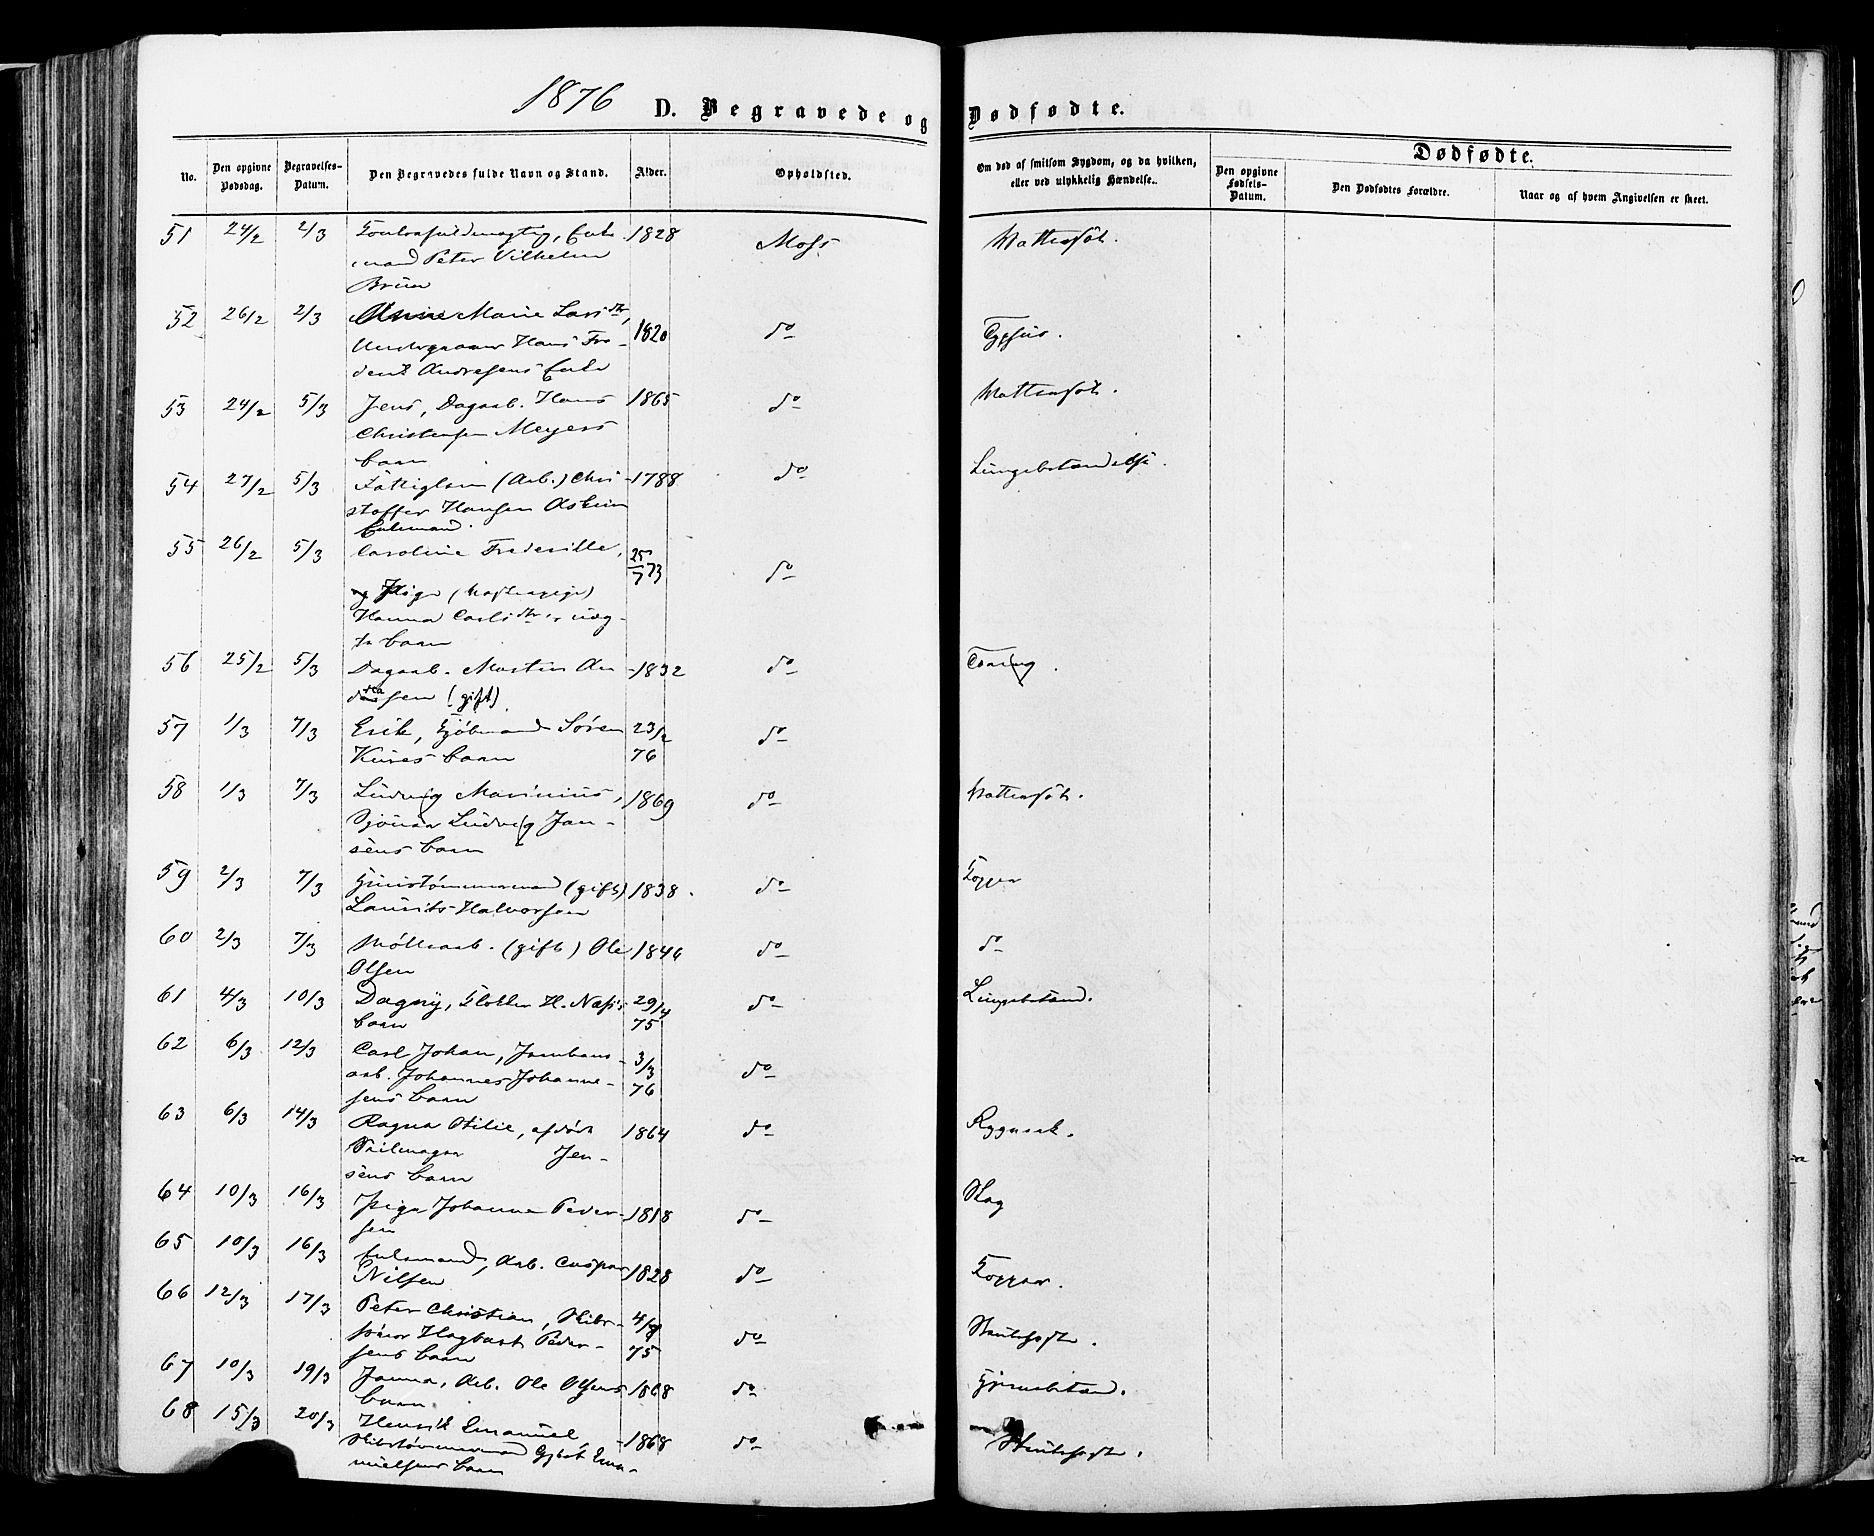 1876
D. Begravede og Dødfødte.
No. Den opgivne Dødsdag. Begravelses-Datum. Den Begravedes fulde Navn og Stand. Alder. Opholdsted. Om død af smitsom Sygdom, og da hvilken, eller ved ulykkelig Hændelse. Dødfødte.
Den opgivne Fødsels-Datum. Den Dødfødtes Forældre. Naar og af hvem Angivelsen er skeet.
51 24/2 2/3 Enke- 1828 Moss Vattersot.
mand Peter Vilhelm
Bruun
52 26/2 2/3 Anne Marie Larsdtr, 1820 do Typhus.
Hans Fre-
Andresens Enke
53 24/2 5/3 Jens, Dagarb. Hans 1865 do Vattersot.
Christensen Meyers
barn
54 27/2 5/3 Fattiglem (Arb.) Chri- 1788 do Lungebetændelse.
stoffer Hansen Askim
Enkemand.
55 26/2 5/3 Caroline Fredrikke, 25/7 73 do
Pige
Hanna Carlsdtr., uæg-
te barn
56 25/2 5/3 Dagarb. Martin An- 1832 do Tæring.
dreasen (gift).
57 1/3 7/3 Erik, Søren 23/2 76 do
Kures barn
58 1/3 7/3 Ludvig Marinius, 1869 do Vattersot.
Ludvig Jan-
sens barn
59 2/3 7/3 (gift) 1838. do Kopper
Laurits Halvorsen
60 2/3 7/3 Møllearb. (gift) Ole 1846 do do
Olsen
61 4/3 10/3 Dagny, H. Næss's 29/4 75 do Lungebetænd.
barn
62 6/3 12/3 Carl Johan, Jernbane- 3/3 76 do
arb. Johannes Johanne-
sens barn
63 6/3 14/3 Ragna Otilie, afdøde 1864 do Rygmark.
Seilmager Jen-
sens barn
64 10/3 16/3 Pige Johanne Peder- 1818 do Slag
sen
65 10/3 16/3 Enkemand, Arb. Caspar 1828 do Kopper.
Nilsen
66 12/3 17/3 Peter Christian, Skibs- 75 do Strubehoste.
fører Hagbart Peder-
sens barn
67 10/3 19/3 Janna, Arb. Ole Olsens 1868 do Hjernebetænd.
barn
68 15/3 20/3 Henrik Emanuel 1868 do Strubehoste.
Skibstømmermand Gjert Ema-
nuelsens barn